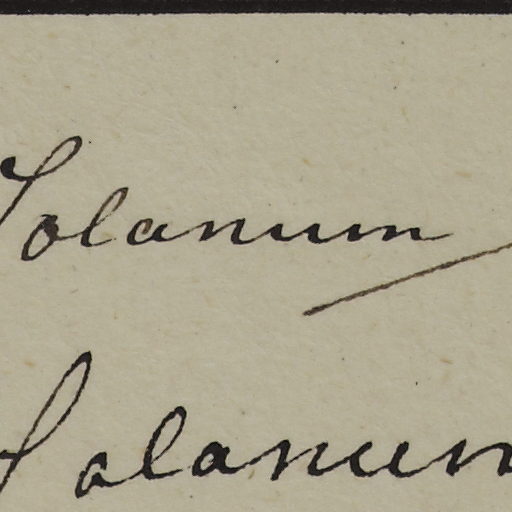 Solanum
Solanum